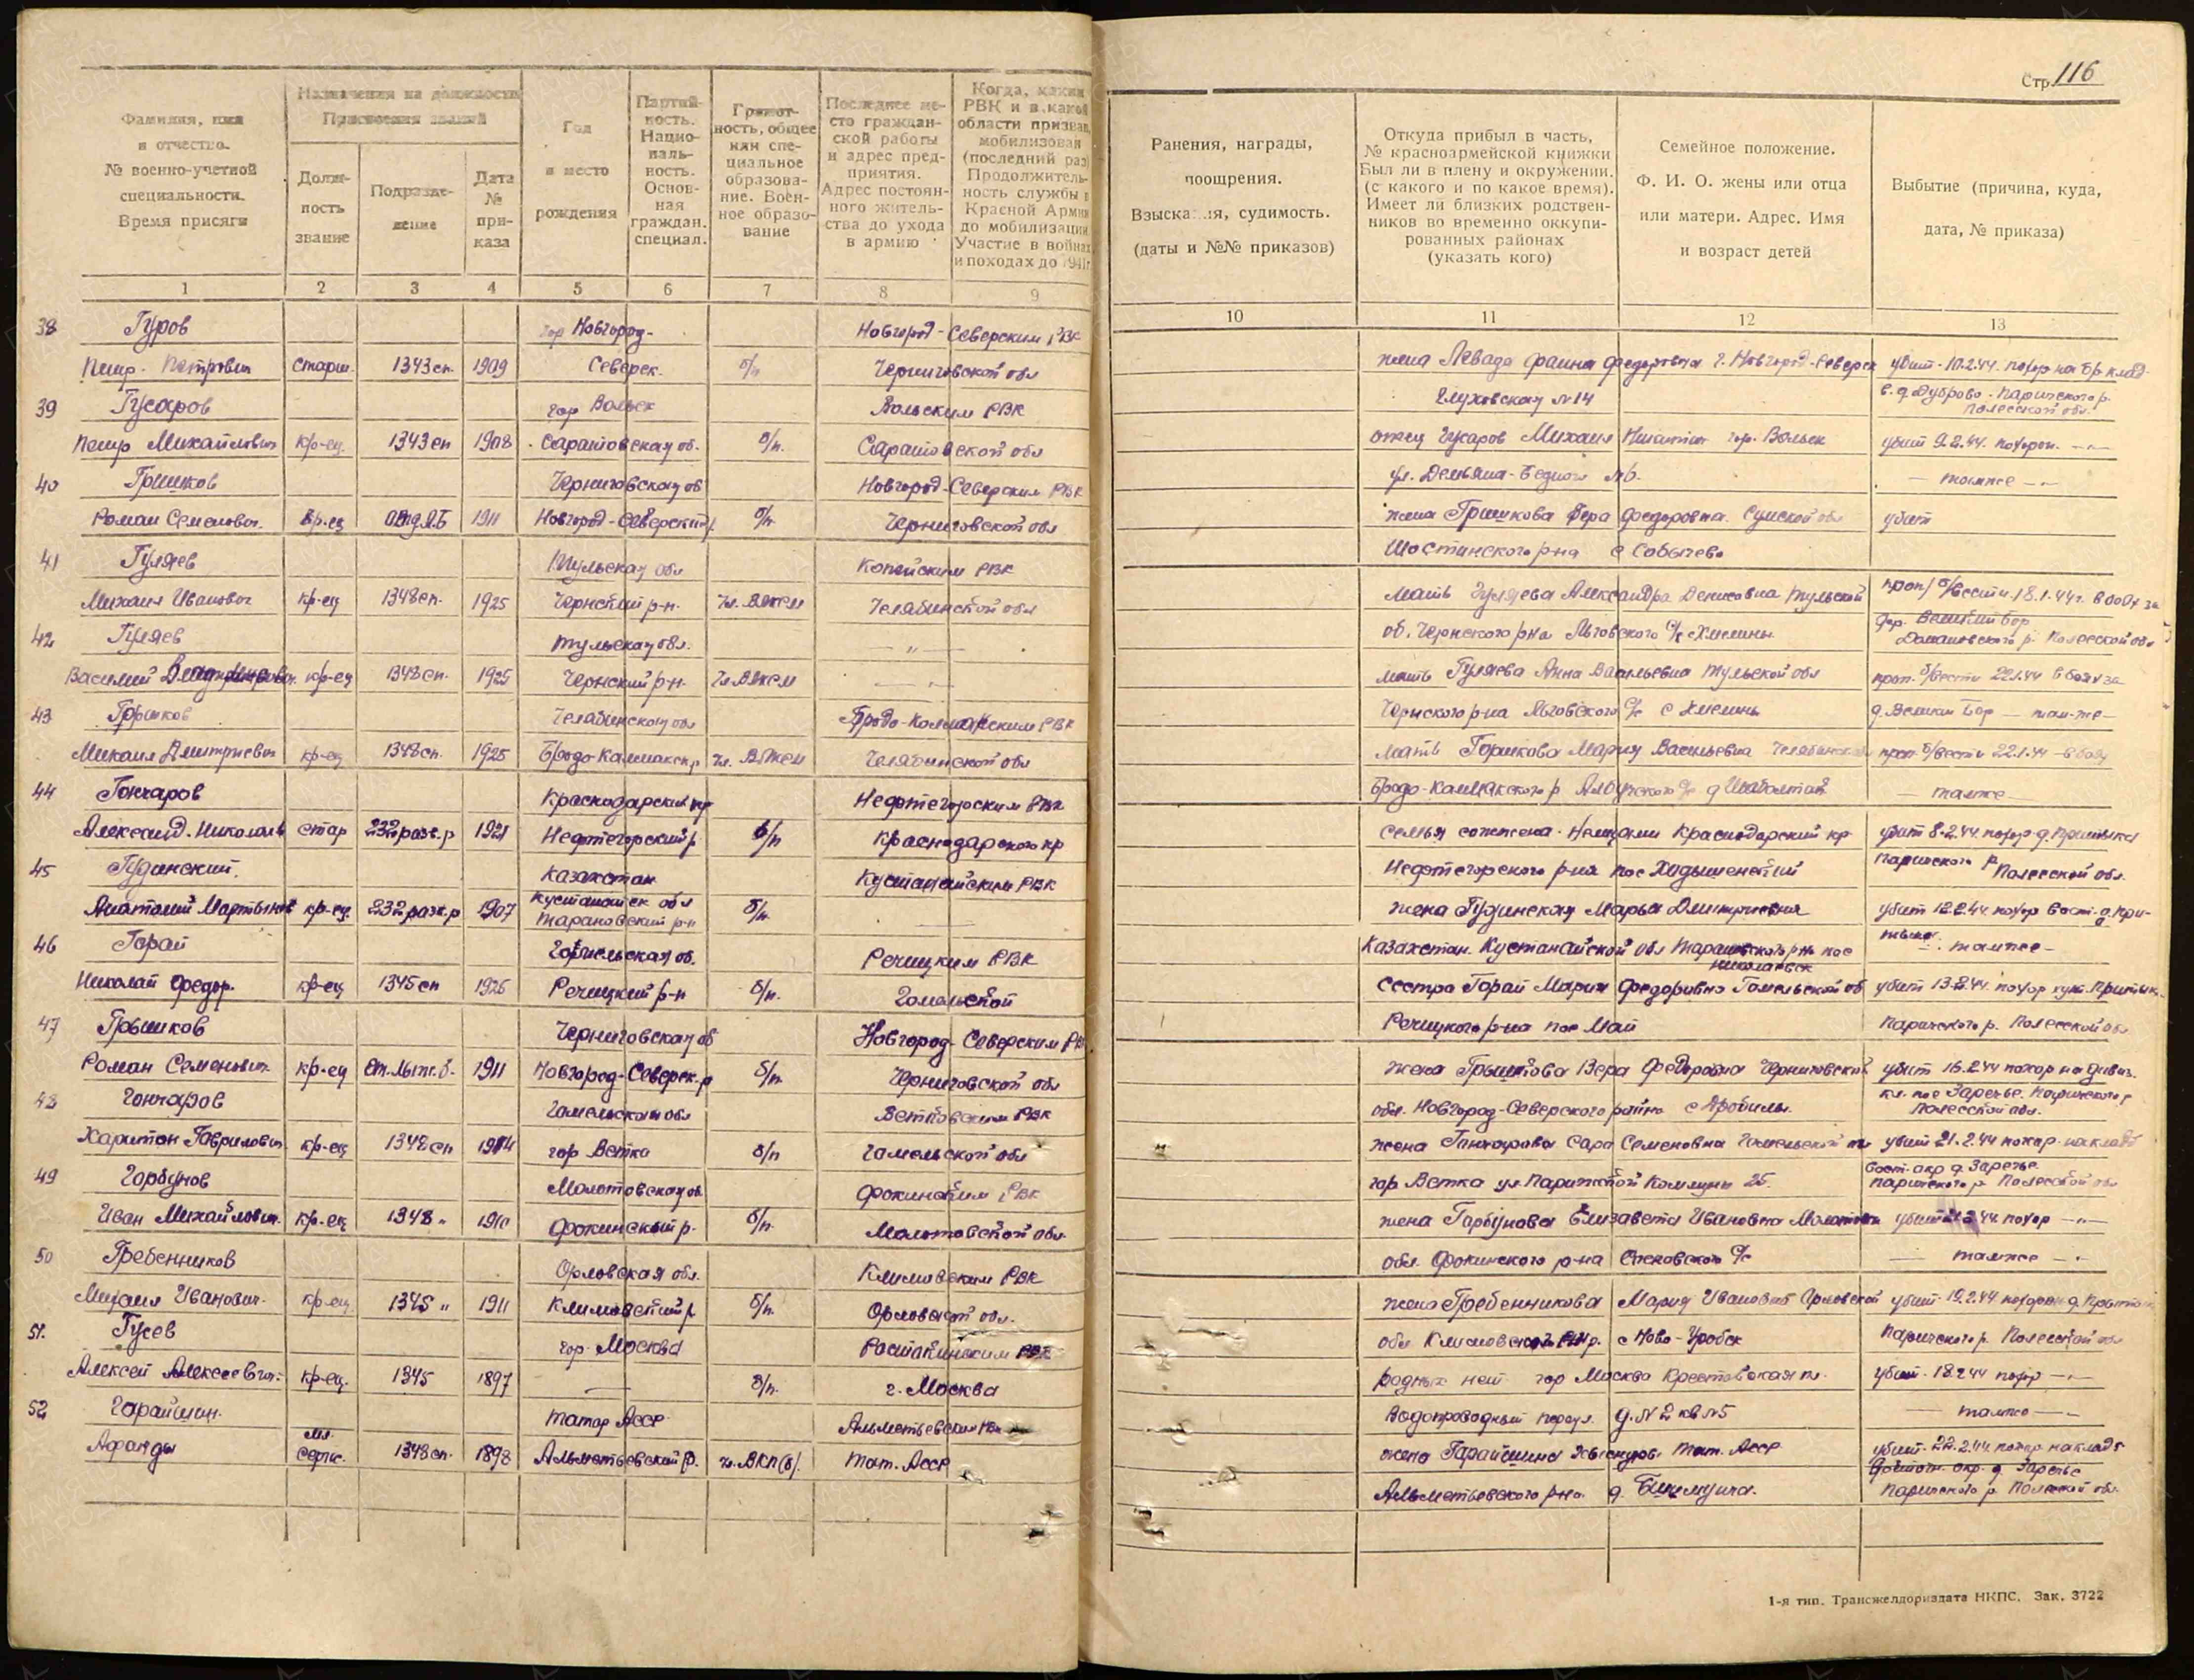 Стр. 116
Фамилия, имя
и отчество.
№ военно-учетной
специальности.
Время присяги
Назначения на должности
Присвоения званий
Долж-
ность
звание
Подразде-
ление
Дата
№
при-
каза
Год
и место
рождения
Партий-
ность.
Нацио-
наль-
ность.
Основ-
ная
граждан.
специал.
Грамот-
ность, общее
или спе-
циальное
образова-
ние. Воен-
ное образо-
вание
Последнее ме-
сто граждан-
ской работы
и адрес пред-
приятия.
Адрес постоян-
ного житель-
ства до ухода
в армию
Когда, каким
РВК и в какой
области призван,
мобилизован
(последний раз)
Продолжитель-
ность службы в
Красной Армии
до мобилизации
Участие в войнах
и походах до 1941г
Ранения, награды,
поощрения.
Взыскания, судимость.
(даты и №№ приказов)
Откуда прибыл в часть,
№ красноармейской книжки
Был ли в плену и окружении.
(с какого и по какое время).
Имеет ли близких родствен-
ников во временно оккупи-
рованных районах
(указать кого)
Семейное положение.
Ф. И. О. жены или отца
или матери. Адрес. Имя
и возраст детей
Выбытие (причина, куда,
дата, № приказа)
1 2 3 4 5 6 7 8 9 10 11 12 13
38 Гуров гор Новгород- Новгород-Северским РВК
Петр Петрович старш. 1343 сп. 1909 Северск. б/п Черниговской обл жена Левада Фаина Федоровна г. Новгород-Северск убит 10.2.44. похор на бр. клад.
39 Гусаров гор Вольск Вольским РВК Глуховская №14 в. д. Дуброво Паричского р. Полесской обл.
Петр Михайлович кр-ец. 1343 сп 1908 Саратовская об. б/п. Саратовской обл отец Гусаров Михаил Никитич гор. Вольск убит 9.2.44. похорон. -"-
40 Гришков Черниговская об Новгород-Северским РВК ул. Демьяна-Бедного №6. — там же —
Роман Семенович. кр-ец 1911 Новгород-Северский р. б/п. Черниговской обл жена Гришкова Вера Федоровна. Сумской обл убит
Шостинского р-на с Собычево
41 Гуляев Тульская обл Копейским РВК
Михаил Иванович кр-ец 1348 сп. 1925 Чернский р-н. Чл. ВЛКСМ Челябинской обл мать Гуляева Александра Денисовна Тульской проп/б/вести. 18.1.44г. в боях за
42 Гуляев Тульская обл. — " — об. Чернского р-на Льговского с/с с Хмелины. дер. Великий Бор Домановского р. Полесской обл
Василий кр-ец 1348 сп. 1925 Чернский р-н. Чл. ВЛКСМ — " — мать Гуляева Анна Васильевна Тульской обл проп. б/вести 22.1.44 в боях за
43 Горшков Челябинская обл Бродо-Колмакским РВК Чернского р-на Льговского с/с с Хмелины д. Великий Бор — там же —
Михаил Дмитриевич кр-ец 1348 сп. 1925 Бродо-Калмакск. р Чл. ВЛКСМ Челябинской обл мать Горшкова Мария Васильевна Челябинская проп. б/вести 22.1.44 в бою
44 Гончаров Краснодарский кр Нефтегорским РВК Бродо-Калмакского р с/с д — там же —
Александ. Николаев стар 232 разв.р 1921 Нефтегорский р. б/п Краснодарского кр семья сожжена. Немцами Краснодарский кр убит 8.2.44. похор д. Притыка
45 Гудинский. Казахстан Кустанайским РВК Нефтегорского р-на пос Хадыженский Паричского р Полесской обл.
Анатолий Мартынов кр-ец. 232 разв.р 1907 Кустанайск обл Тарановский р-н б/п. жена Гудинская Марья Дмитриевна убит 12.2.44. похор вост. д. При-
46 Горай Гомельская об. Речицким РВК Казахстан. Кустанайской обл Тарановского р-на пос Николаевск тыка. там же —
Николай Федор. кр-ец 1345 сп 1926 Речицкий р-н б/п. Гомельской сестра Горай Мария Федоровна Гомельской об убит 13.2.44. похор хут. Притык.
47 Грышков Черниговская об Новгород-Северским РВК Речицкого р-на пос Май Паричского р. Полесской обл
Роман Семенович кр-ец от. лыж. б. 1911 Новгород-Северск. р б/п. Черниговской обл жена Грышкова Вера Федоровна Черниговской убит 16.2.44 похор на дивиз.
48 Гончаров Гомельская обл Ветковским РВК обл. Новгород-Северского района с кл. пос Заречье. Паричского р Полесской обл.
Харитон Гаврилович кр-ец 1348 сп 1904 гор Ветка б/п Гомельской обл жена Гончарова Сара Семеновна Гомельской обл убит 21.2.44 похор. на кладб
49 Горбунов Молотовская об. Фокинским РВК гор Ветка ул Парижской Коммуны 25. вост. окр д. Заречье Паричского р Полесской обл
Иван Михайлович. кр-ец. 1348 " 1910 Фокинский р. б/п. Молотовской обл. жена Гарбунова Елизавета Ивановна Молотовск убит 2.44. похор —"—
50 Гребенников Орловская обл. Климовским РВК обл. Фокинского р-на с/с — там же —
Михаил Иванович. кр-ец. 1345 " 1911 Климовский р б/п. Орловской обл. жена Гребенникова Мария Ивановна Орловской убит 19.2.44 похорон д.
51. Гусев гор. Москва Растакинским РВК обл Климовского р. с Ново- Паричского р. Полесской обл
Алексей Алексеевич. кр-ец. 1345 1897 — б/п. г. Москва родных нет гор Москва Крестовская пл. убит. 18.2.44 похор —"—
52 Гарайшин. Татар АССР Альметьевским РВК Водопроводный переул. д. №2 кв №5 — там же —
Афанды мл. серж. 1348 сп. 1898 Альметьевский р. чл. ВКП(б). Тат. АССР жена Гарайшина Тат. АССР убит. 22.2.44 похор на кладб
Альметьевского р-на. д. окр. д. Заречье Паричского р. Полесской обл.
1-я тип. Трансжелдориздата НКПС. Зак. 3722